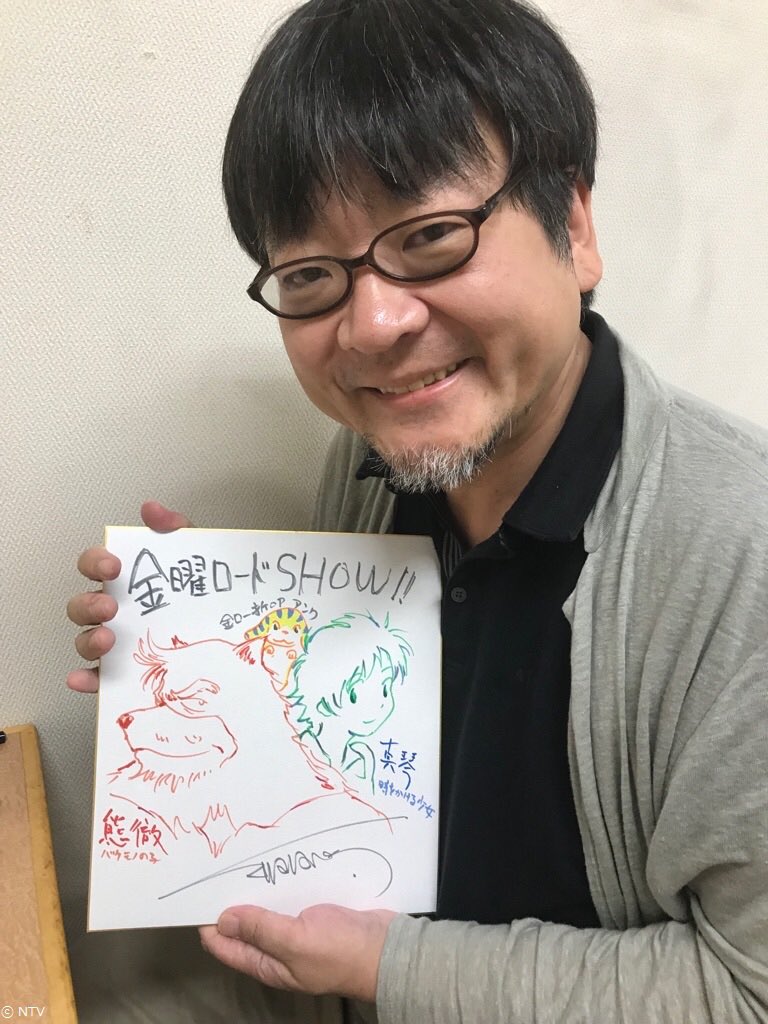 金曜ロードSHOW!!
金ロー新OP アンク
真琴
時をかける少女
熊徹
バケモノの子
© NTV